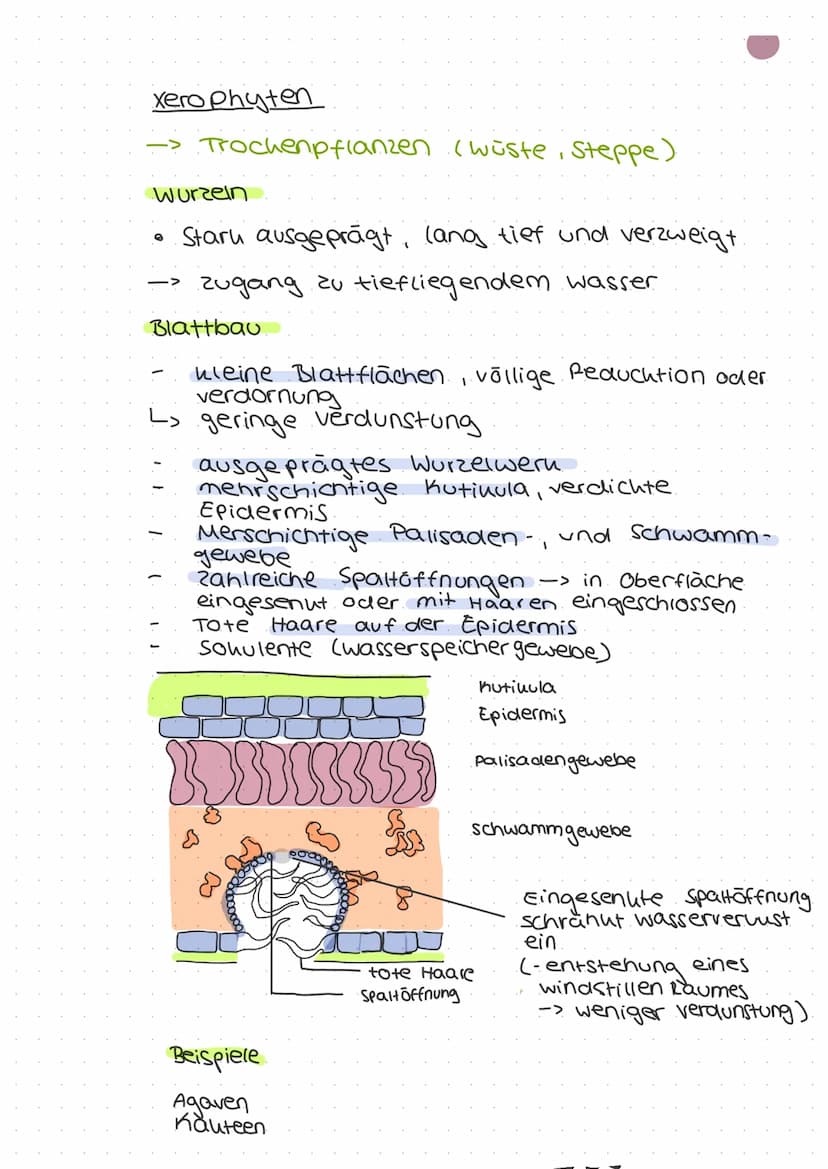 Xerophyten
-> Trockenpflanzen (Wüste, Steppe)
Wurzeln
• Stark ausgeprägt, lang tief und verzweigt
-> zugang zu tiefliegendem wasser
Blattbau
- kleine Blattflächen, völlige Reducktion oder
verdornung
↳ geringe Verdunstung
- ausgeprägtes Wurzelwerk
- mehrschichtige Kutikula, verdichte
Epidermis
- Merschichtige Palisaden-, und Schwamm-
gewebe
- Zahlreiche Spaltöffnungen -> in Oberfläche
eingesenkt oder mit Haaren eingeschlossen
- Tote Haare auf der Epidermis
- Sokulente (wasserspeichergewebe)
Kutikula
Epidermis
Palisadengewebe
Schwammgewebe
Eingesenkte Spaltöffnung
schränkt wasserverlust
ein
(-entstehung eines
windstillen Raumes
-> weniger verdunstung)
tote Haare
Spaltöffnung
Beispiele
Agaven
Kakteen